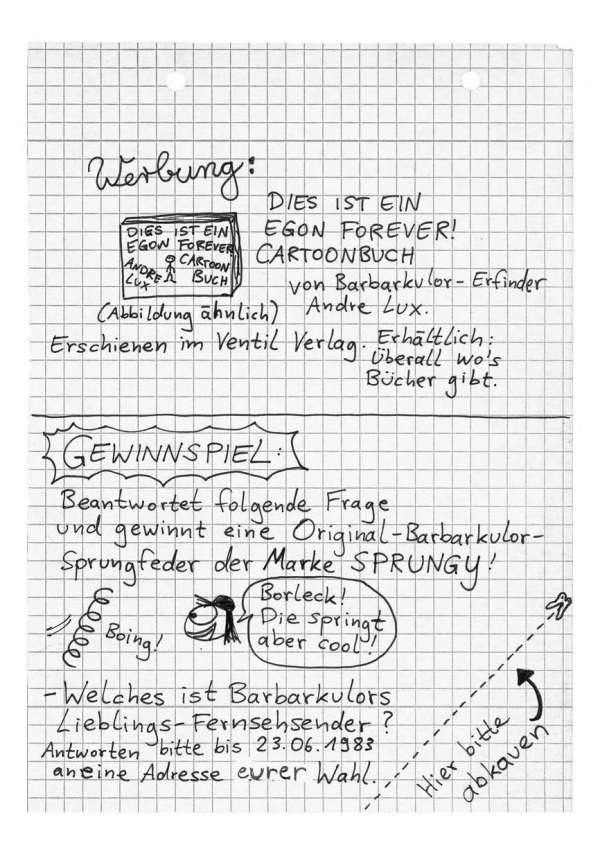 Werbung:
DIES IST EIN
EGON FOREVER!
CARTOONBUCH
von Barbarkulor-Erfinder
Andre Lux.
DIES IST EIN
EGON FOREVER
CARTOON
ANDRE BUCH
LUX
(Abbildung ähnlich)
Erschienen im Ventil Verlag. Erhältlich:
Überall wo's
Bücher gibt.
GEWINNSPIEL:
Beantwortet folgende Frage
und gewinnt eine Original-Barbarkulor-
Sprungfeder der Marke SPRUNGY!
Boing!
Borleck!
Die springt
aber cool!
-Welches ist Barbarkulors
Lieblings-Fernsehsender?
Antworten bitte bis 23.06.1983
an eine Adresse eurer Wahl.
Hier bitte
abkauen